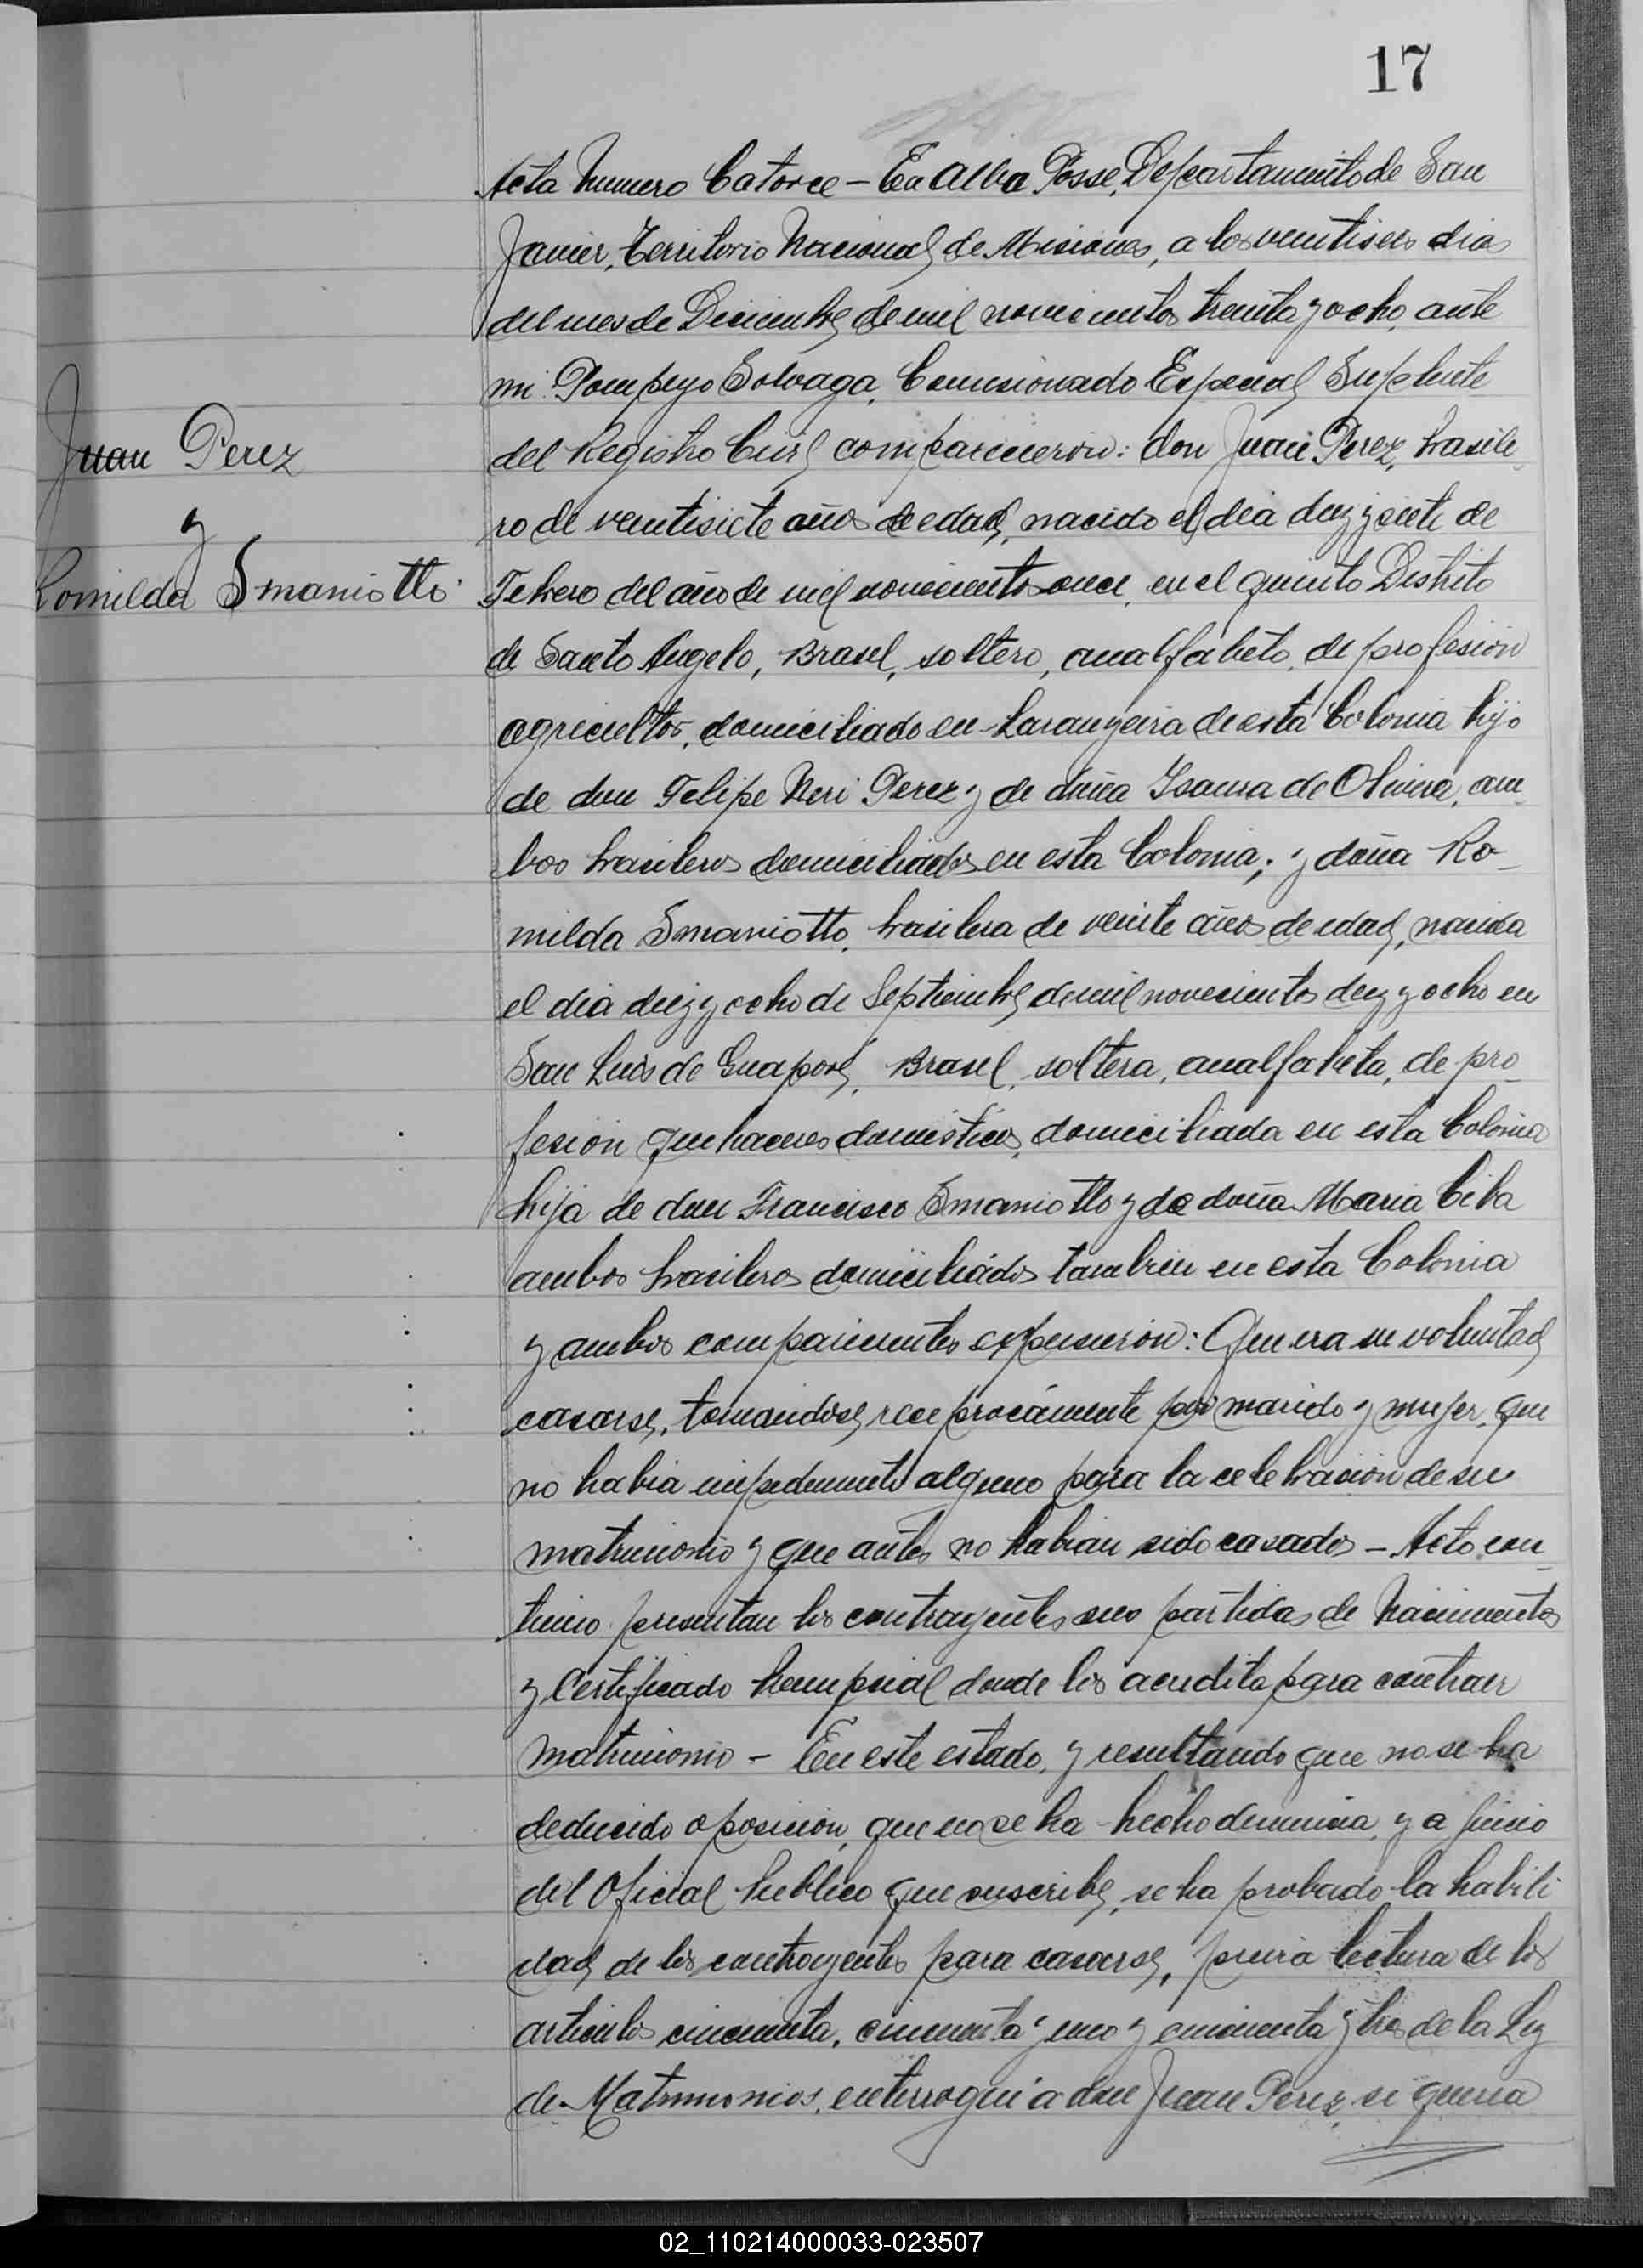 17
Acta Numero Catorce – En Alba Posse, Departamento de San
Javier, Territorio Nacional de Misiones, a los ventiseis dias
del mes de Diciembre de mil novecientos treinta y ocho, ante
mi Pompeyo Solvaga, Comisionado Especial Suplente
del Registro Civil comparecieron: don Juan Perez, brasile
Juan Perez
y
Romilda Smaniotto
ro de ventisiete años de edad, nacido el dia diez y siete de
Febrero del año de mil novecientos once, en el quinto Distrito
de Santo Angelo, Brasil, soltero, analfabeto, de profesion
agricultor, domiciliado en Laranyeira de esta Colonia hijo
de don Felipe Neri Perez y de doña Isaura de Olivera, am
bos brasileros domiciliados en esta Colonia; y doña Ro-
milda Smaniotto, brasilera de veinte años de edad, nacida
el dia diez y ocho de Septiembre de mil novecientos diez y ocho en
San Luis de Guaporé, Brasil, soltera, analfabeta, de pro
fesion quehaceres domesticos, domiciliada en esta Colonia
hija de don Francisco Smaniotto y de doña Maria
ambos brasileros domiciliados tambien en esta Colonia
y ambos comparecientes expusieron: Que era su voluntad
casarse, tomandose reciprocámente por marido y mujer, que
no habia impedimento alguno para la celebracion de su
matrimonio y que antes no habian sido casados – Acto con-
tinuo presentan los contrayentes sus partidas de Nacimientos
y Certificado Prenupcial donde los acredita para contraer
matrimonio – En este estado, y resultando que no se ha
deducido oposicion, que no se ha hecho denuncia, y a juicio
del Oficial Publico que suscribe, se ha probado la habili
dad de los contrayentes para casarse, previa lectura de los
articulos cincuenta, cincuenta y uno y cincuenta y tres de la Ley
de Matrimonios, enterrogué a don Juan Perez si queria
02_110214000033-023507